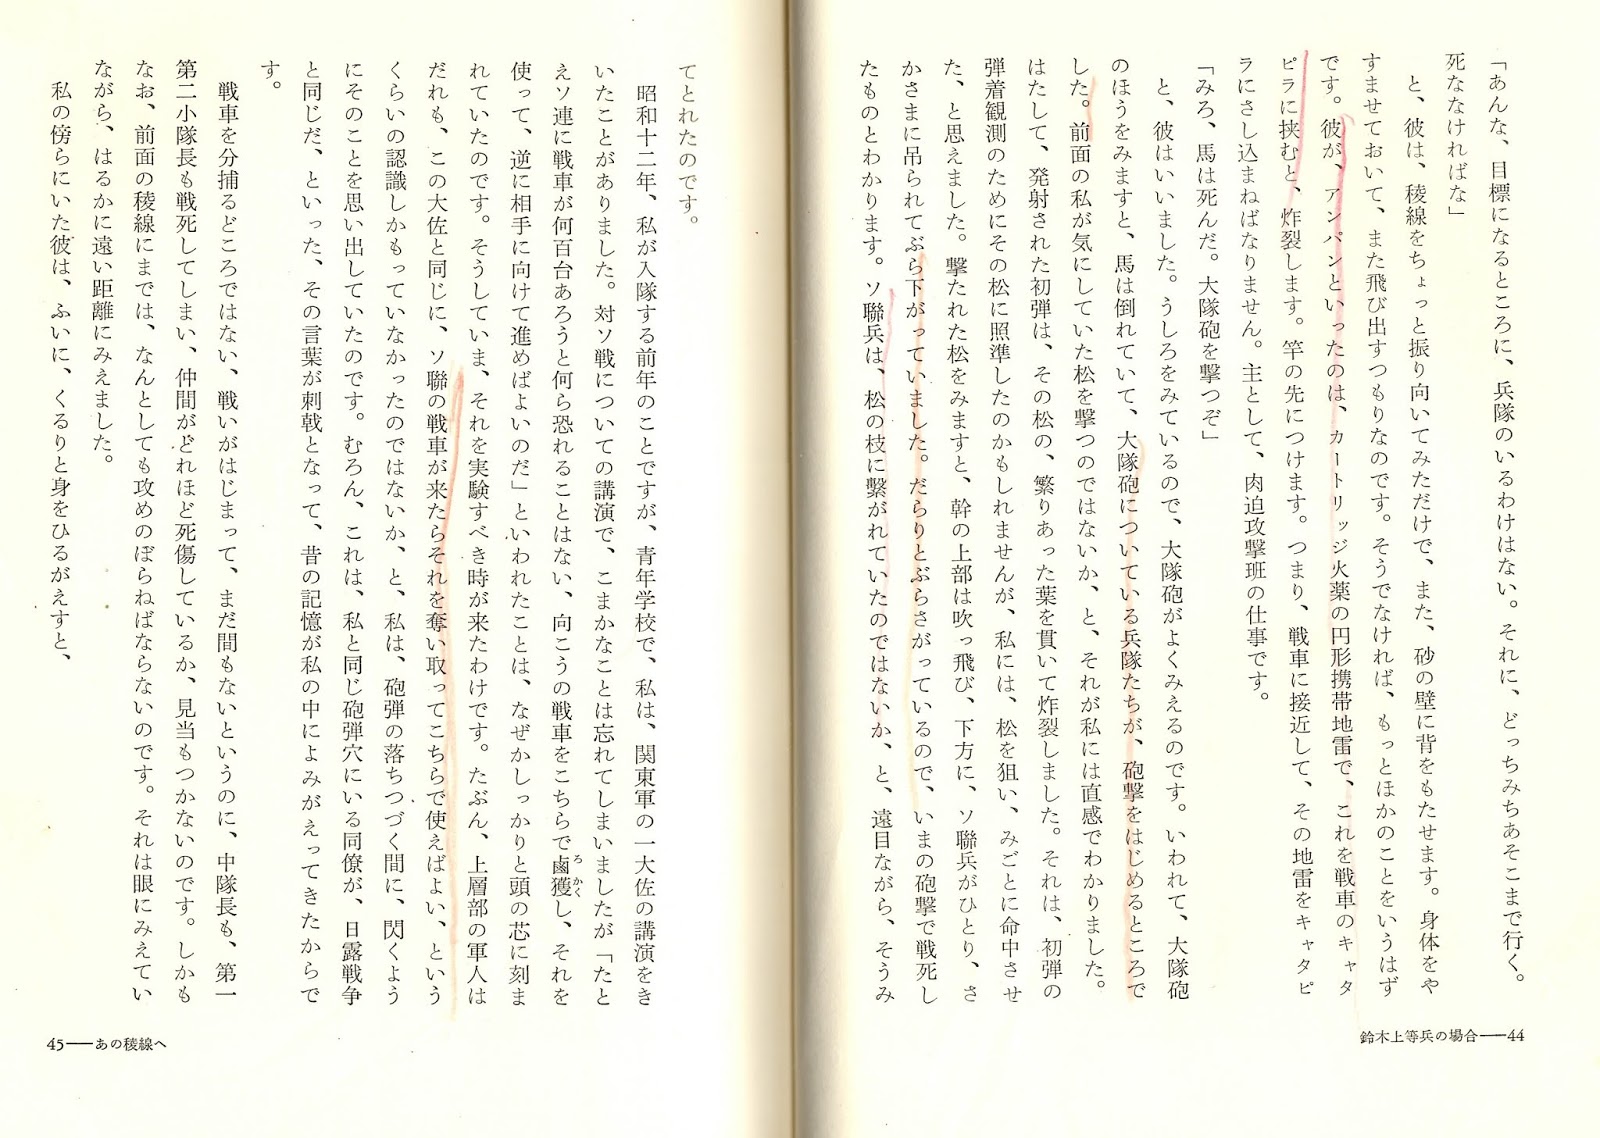 「あんな、目標になるところに、兵隊のいるわけはない。それに、どっちみちあそこまで行く。
死ななければな」
と、彼は、稜線をちょっと振り向いてみただけで、また、砂の壁に背をもたせます。身体をや
すませておいて、また飛び出すつもりなのです。そうでなければ、もっとほかのことをいうはず
です。彼が、アンパンといったのは、カートリッジ火薬の円形携帯地雷で、これを戦車のキャタ
ピラに挟むと、炸裂します。竿の先につけます。つまり、戦車に接近して、その地雷をキャタピ
ラにさし込まねばなりません。主として、肉迫攻撃班の仕事です。
「みろ、馬は死んだ。大隊砲を撃つぞ」
と、彼はいいました。うしろをみているので、大隊砲がよくみえるのです。いわれて、大隊砲
のほうをみますと、馬は倒れていて、大隊砲についている兵隊たちが、砲撃をはじめるところで
した。前面の私が気にしていた松を撃つのではないか、と、それが私には直感でわかりました。
はたして、発射された初弾は、その松の、繁りあった葉を貫いて炸裂しました。それは、初弾の
弾着観測のためにその松に照準したのかもしれませんが、私には、松を狙い、みごとに命中させ
た、と思えました。撃たれた松をみますと、幹の上部は吹っ飛び、下方に、ソ聯兵がひとり、さ
かさまに吊られてぶら下がっていました。だらりとぶらさがっているので、いまの砲撃で戦死し
たものとわかります。ソ聯兵は、松の枝に繫がれていたのではないか、と、遠目ながら、そうみ
鈴木上等兵の場合──44
てとれたのです。
昭和十二年、私が入隊する前年のことですが、青年学校で、私は、関東軍の一大佐の講演をき
いたことがありました。対ソ戦についての講演で、こまかなことは忘れてしまいましたが「たと
えソ連に戦車が何百台あろうと何ら恐れることはない、向こうの戦車をこちらで鹵獲(ろかく)し、それを
使って、逆に相手に向けて進めばよいのだ」といわれたことは、なぜかしっかりと頭の芯に刻ま
れていたのです。そうしていま、それを実験すべき時が来たわけです。たぶん、上層部の軍人は
だれも、この大佐と同じに、ソ聯の戦車が来たらそれを奪い取ってこちらで使えばよい、という
くらいの認識しかもっていなかったのではないか、と、私は、砲弾の落ちつづく間に、閃くよう
にそのことを思い出していたのです。むろん、これは、私と同じ砲弾穴にいる同僚が、日露戦争
と同じだ、といった、その言葉が刺戟となって、昔の記憶が私の中によみがえってきたからで
す。
戦車を分捕るどころではない、戦いがはじまって、まだ間もないというのに、中隊長も、第一
第二小隊長も戦死してしまい、仲間がどれほど死傷しているか、見当もつかないのです。しかも
なお、前面の稜線にまでは、なんとしても攻めのぼらねばならないのです。それは眼にみえてい
ながら、はるかに遠い距離にみえました。
私の傍らにいた彼は、ふいに、くるりと身をひるがえすと、
45──あの稜線へ